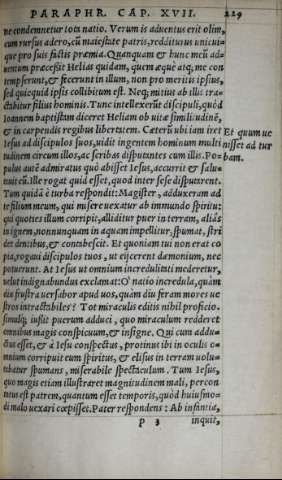 PARAPHR. CAP. XVII. 229
ne condemnetur tota natio. Verum is aduentus erit olim,
cum rursus adero, cū maiestate patris, redditurus unicui-
que pro suis factis præmia. Quanquam & hunc meū ad-
uentum præcessit Helias quidam, quem æque atq; me con
tempserunt, & fecerunt in illum, non pro meritis ipsius,
sed quicquid ipsis collibitum est. Neq; mitius ab illis tra-
ctabitur filius hominis. Tunc intellexerūt discipuli, quòd
Ioannem baptistam diceret Heliam ob uitæ similitudinē,
& in carpendis regibus libertatem. Cæterū ubi iam iret
Iesus ad discipulos suos, uidit ingentem hominum multi
tudinem circum illos, ac scribas disputantes cum illis. Po-
pulus autē admiratus quò abisset Iesus, accurrit & salu-
nuit eū. Ille rogat quid esset, quod inter sese disputarent.
Tum quidā è turba respondit: Magister, adduxeram ad
te filium meum, qui misere uexatur ab immundo spiritu:
qui quoties illum corripit, alliditur puer in terram, aliàs
in ignem, nonnunquam in aquam impellitur, spumat, stri
det dentibus, & contabescit. Et quoniam tui non erat co
pia, rogaui discipulos tuos, ut eijcerent dæmonium, nec
potuerunt. At Iesus ut omnium incredulitati mederetur,
uelut indignabundus exclamat: O natio incredula, quàm
diu frustra uersabor apud uos, quàm diu feram mores ue
stros intractabiles? Tot miraculis editis nihil proficio.
simulq; iussit puerum adduci, quo miraculum redderet
omnibus magis conspicuum, & insigne. Qui cum addu-
ctus esset, & à Iesu conspectus, protinus ibi in oculis o-
mnium corripuit eum spiritus, & elisus in terram uolu-
tabatur spumans, miserabile spectaculum. Tum Iesus,
quo magis etiam illustraret magnitudinem mali, percon
tatus est patrem, quantum esset temporis, quòd huiusmo-
di malo uexari cœpisset. Pater respondens: Ab infantia,
p 3 inquit,
Et quum ue
nisset ad tur
bam.